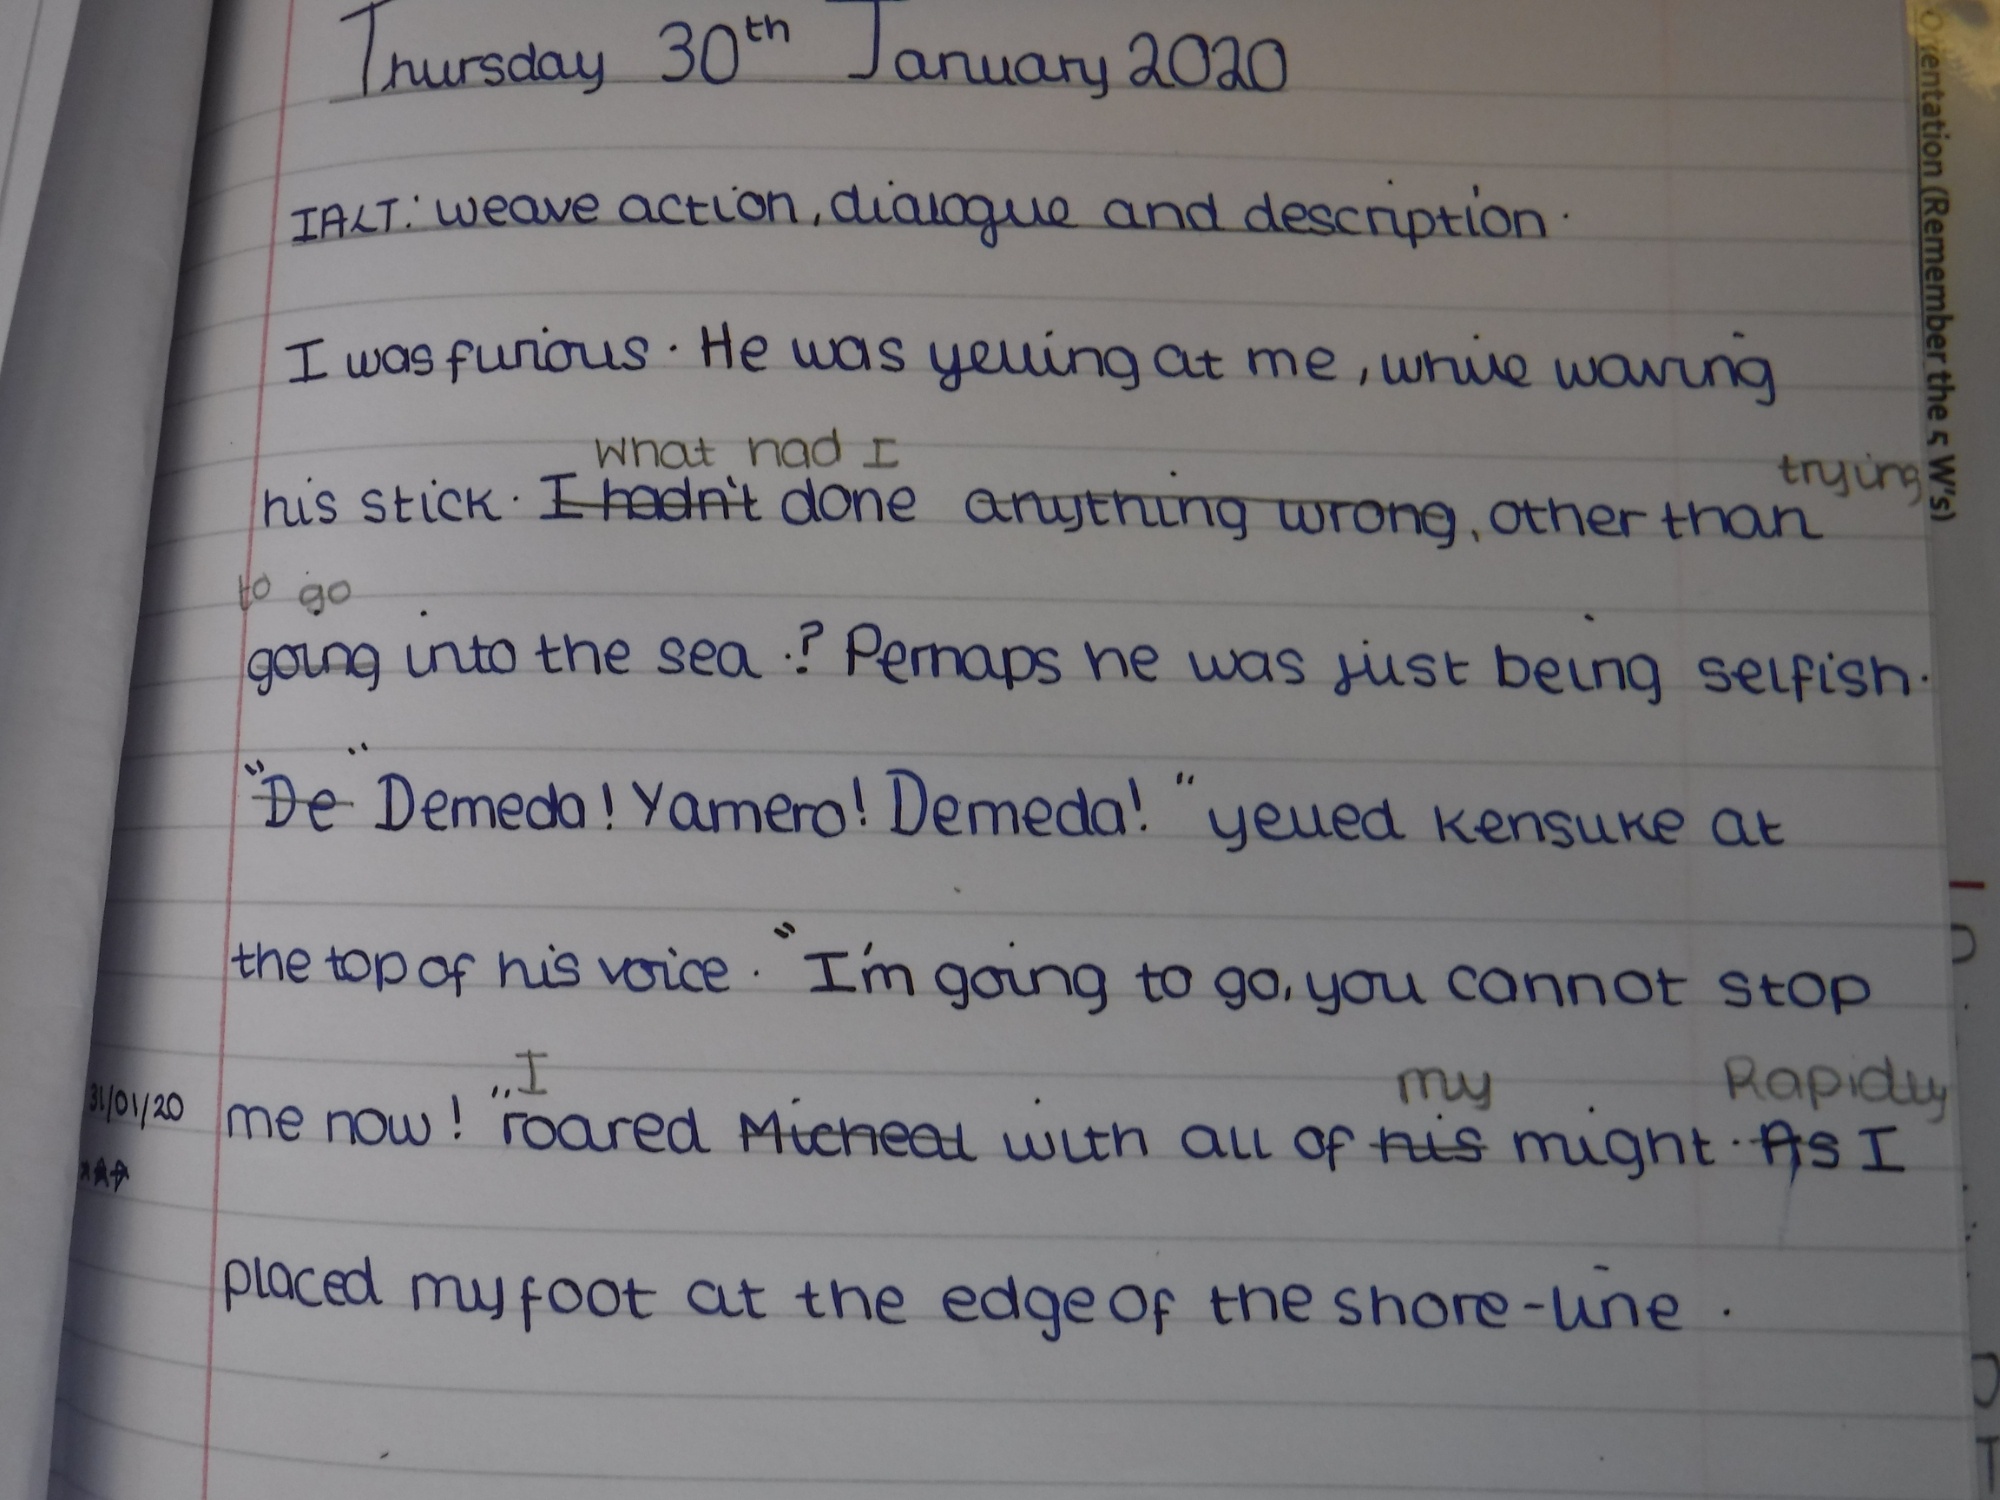 Thursday 30th January 2020
IALT: weave action, dialogue and description.
I was furious. He was yelling at me, while waving
What had I
trying
his stick. I hadn't done anything wrong, other than
to go
going into the sea.? Perhaps he was just being selfish.
"De" Demeda! Yamero! Demeda!" yelled Kensuke at
the top of his voice. "I'm going to go, you cannot stop
I
my
Rapidly
31/01/20
me now!" roared Micheal with all of his might. As I
placed my foot at the edge of the shore-line.
Orientation (Remember the 5 W's)